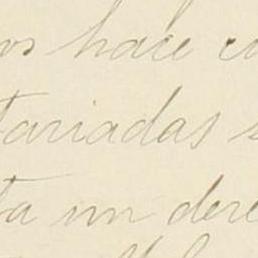 os hace co
tariadas s
ta un dere